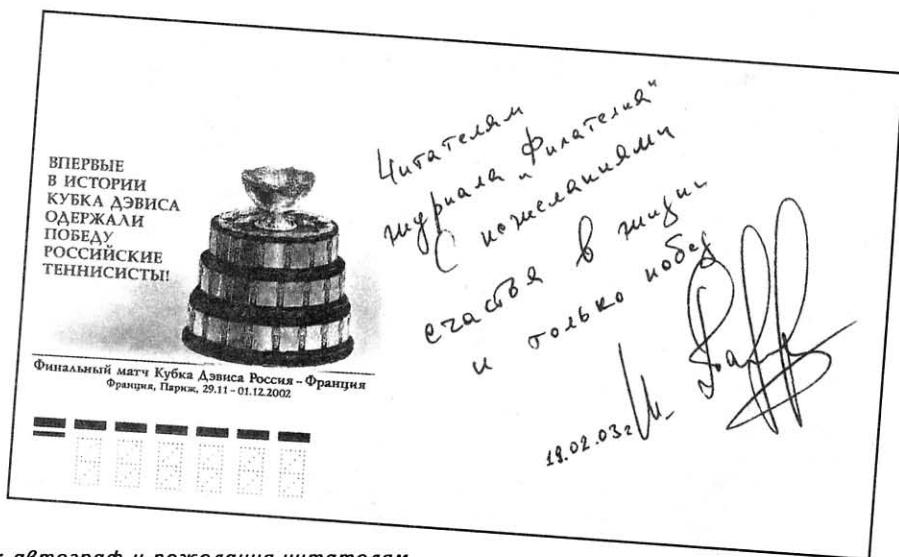 ВПЕРВЫЕ
В ИСТОРИИ
КУБКА ДЭВИСА
ОДЕРЖАЛИ
ПОБЕДУ
РОССИЙСКИЕ
ТЕННИСИСТЫ!
Финальный матч Кубка Дэвиса Россия – Франция
Франция, Париж, 29.11 – 01.12.2002
Читателям
журнала „Филателия"
С пожеланиями
счастья в жизни
и только побед
19.02.03г
автограф и пожелания читателям